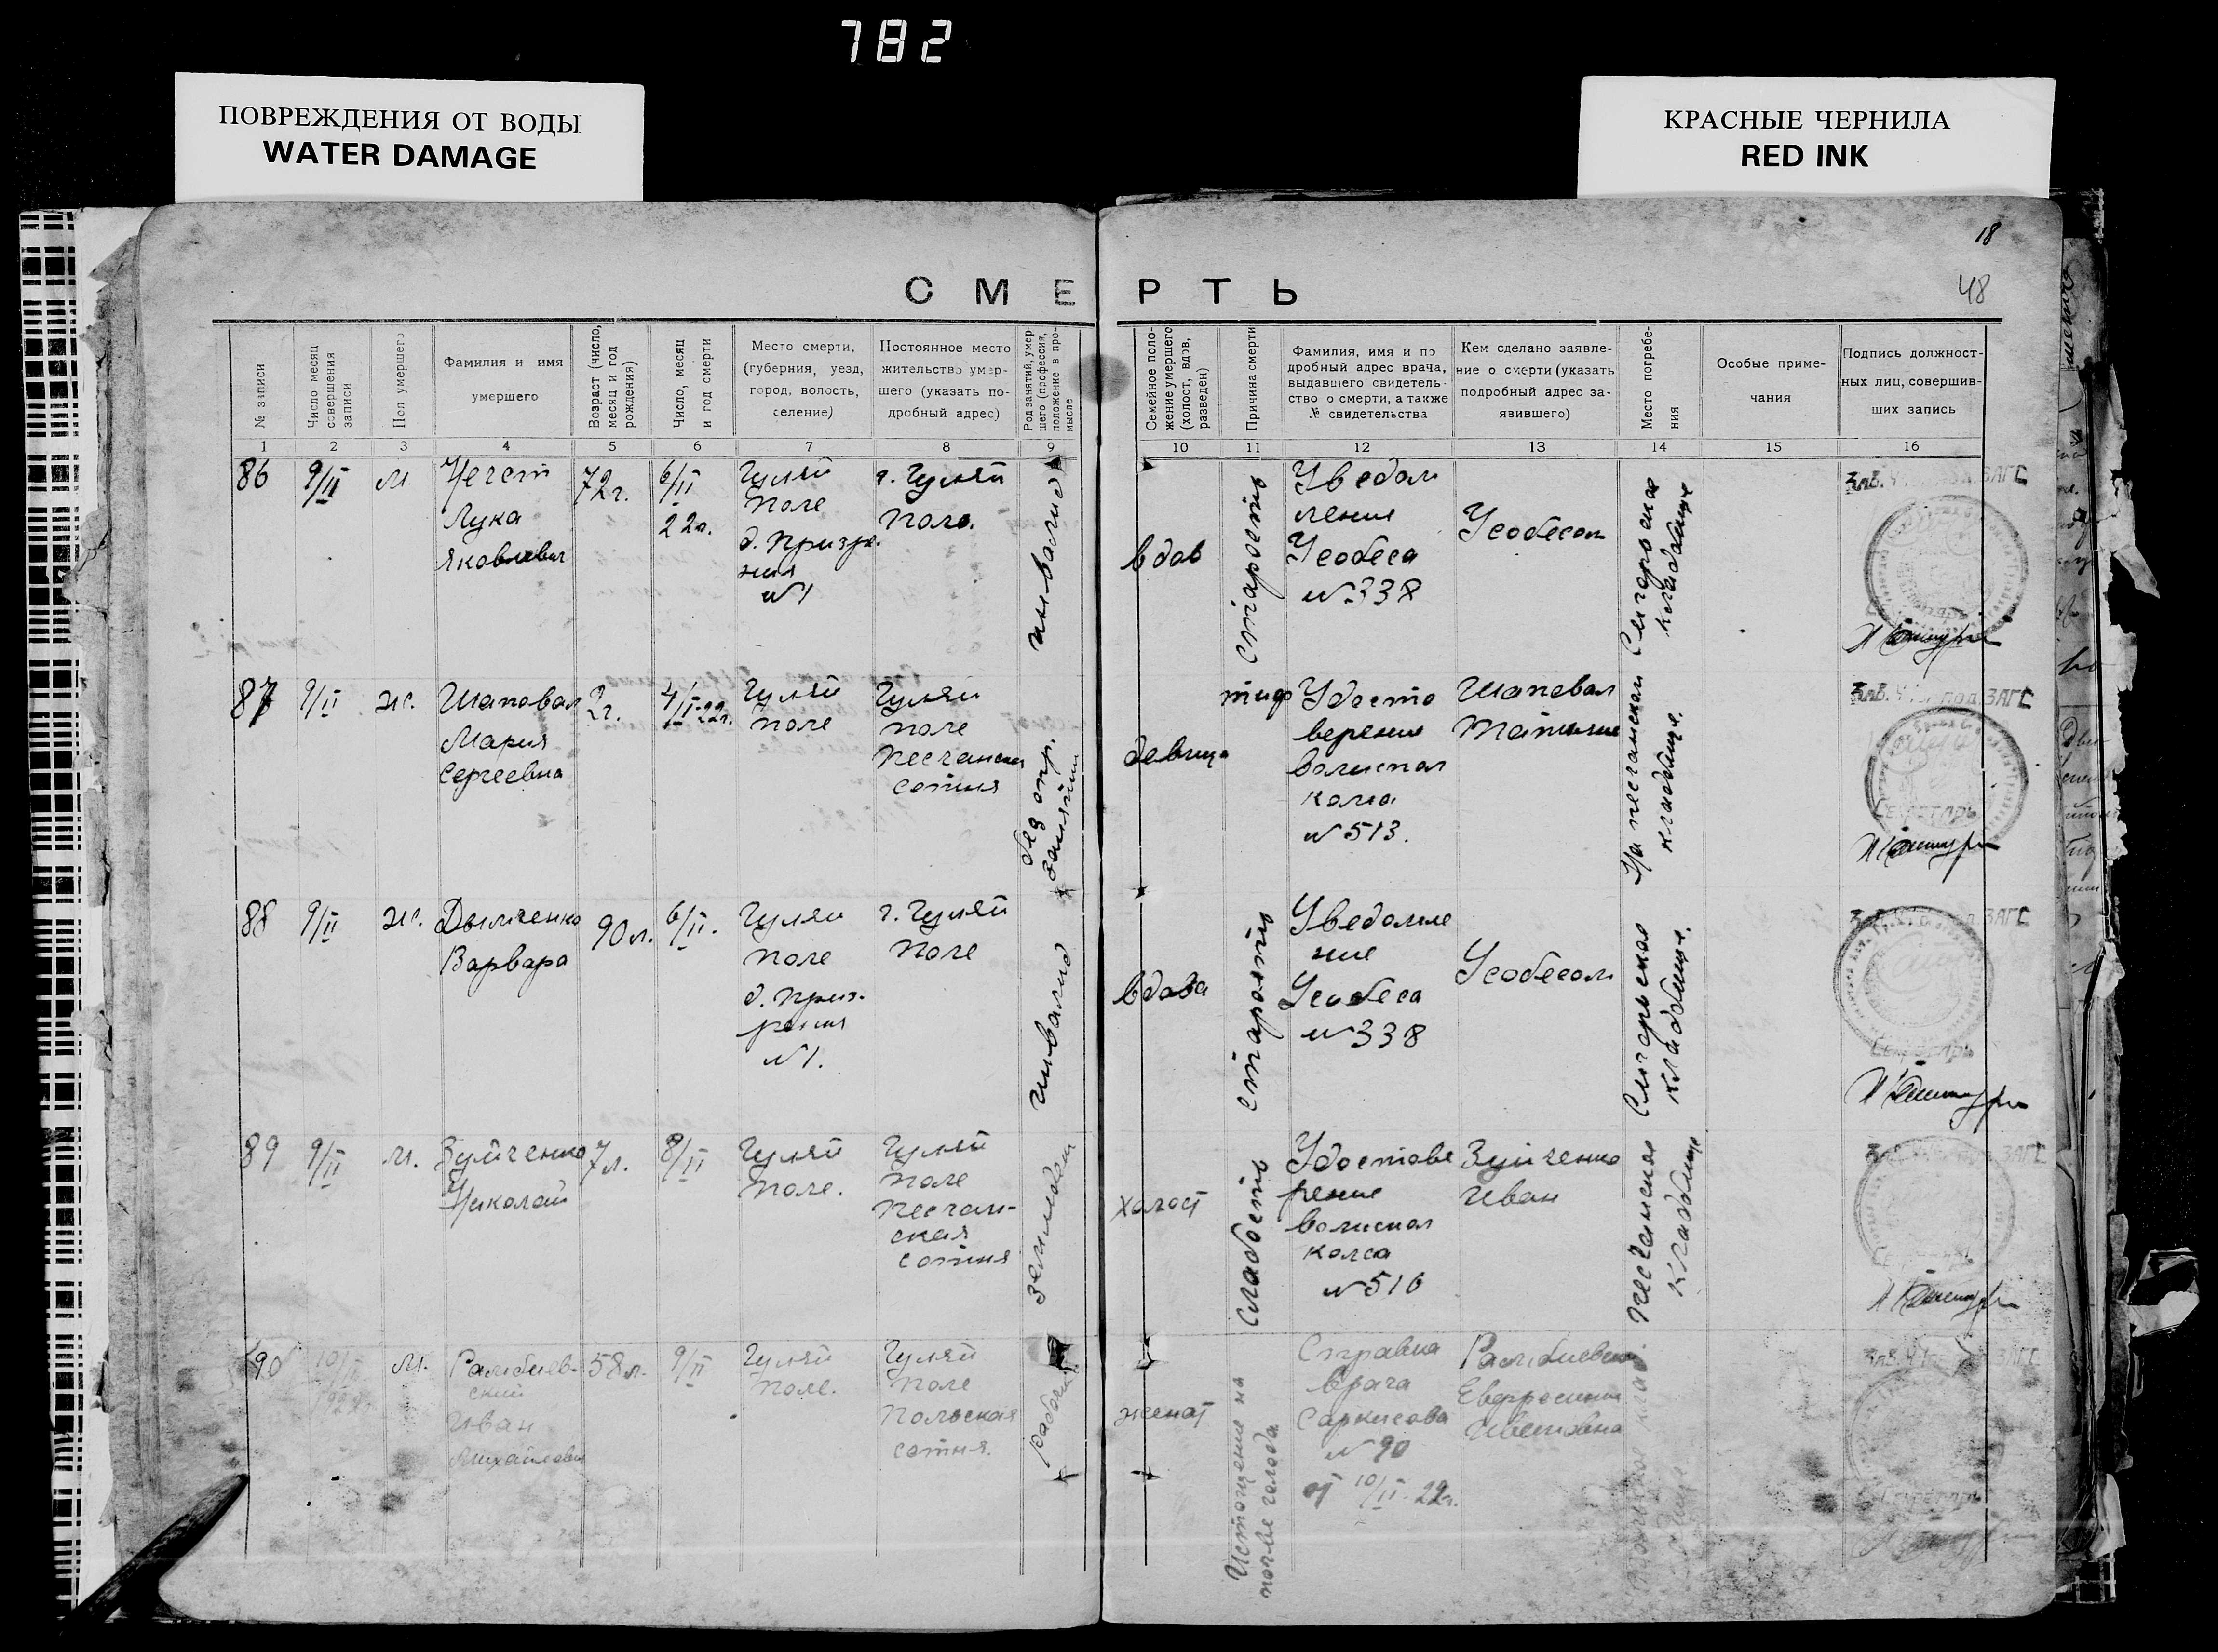 782
ПОВРЕЖДЕНИЯ ОТ ВОДЫ
WATER DAMAGE
КРАСНЫЕ ЧЕРНИЛА
RED INK
18
48
СМЕРТЬ
№ записи
Число месяц совершения записи
Пол умершего
Фамилия и имя
умершего
Возраст (число, месяц и год рождения)
Число, месяц и год смерти
Место смерти,
(губерния, уезд,
город, волость,
селение)
Постоянное место
жительство умер-
шего (указать по-
дробный адрес)
Род занятий, умер-
шего (профессия,
положение в про-
мысле
Семейное поло-
жение умершего
(холост, вдов,
разведен)
Причина смерти
Фамилия, имя и по
дробный адрес врача,
выдавшего свидетель-
ство о смерти, а также
№ свидетельства
Кем сделано заявле-
ние о смерти (указать
подробный адрес за-
явившего)
Место погребе-
ния
Особые приме-
чания
Подпись должност-
ных лиц, совершив-
ших запись
1 2 3 4 5 6 7 8 9 10 11 12 13 14 15 16
86
9/II
м.
Лука
Яковлевич
72г.
6/II
22г.
Гуляй
Поле
д. Призре-
ния
№1
г. Гуляй
Поле.
инвалид
вдов
старость
Уведом
ления
Усобеса
№338
Усобесом
кладбище
87
9/II
ж.
Шаповал
Мария
Сергеевна
2г.
4/II-22г.
Гуляй
Поле
Гуляй
Поле
Песчанская
сотня
без опр.
занятий
девица
тиф
Удосто
верение
волиспол
кома
№513.
Шаповал
Татьяна
На песчанском
кладбище.
88
9/II
ж.
Дымченко
Варвара
90л.
6/II.
Гуляй
Поле
д. приз-
рения
№1.
г. Гуляй
Поле
инвалид
вдова
старость
Уведомле
ние
Усобеса
№338
Усобесом
кладбище.
89
9/II
м.
Зуйченко
Николай
7л.
8/II
Гуляй
Поле.
Гуляй
Поле
Песчан-
ская
сотня
земледел
холост
слабость
Удостове
рение
волиспол
кома
№516
Зуйченко
Иван
Песчанская
кладбище
90
10/II
м.
Иван
Михайлович
58л.
9/II
Гуляй
Поле.
Гуляй
Поле
Польская
сотня.
женат
Истощение на
почве голода
Справка
врача
Саркисова
№90
от 10/II-22г.
ЗАГС
ЗАГС
Секретарь
ЗАГС
Секретарь
ЗАГС
ЗАГС
Секретарь